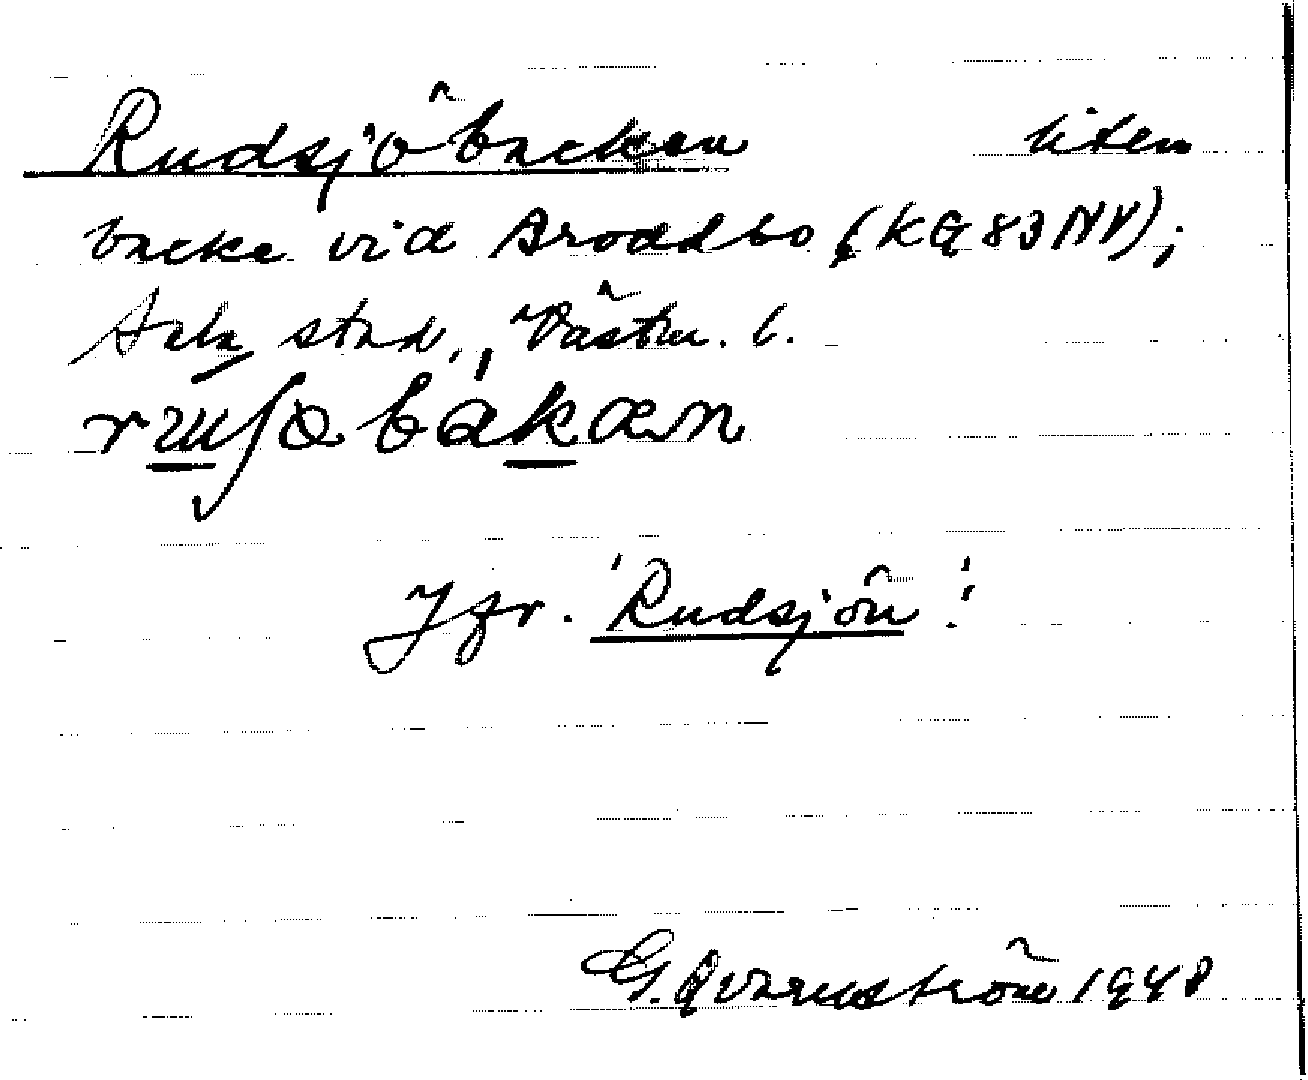 Rudsjöbacken liten
backe vid Broddbo (KG 83 NV);
Sala stad, Västm. l.
Jfr. 'Rudsjön'!
G. Qvarnström 1948